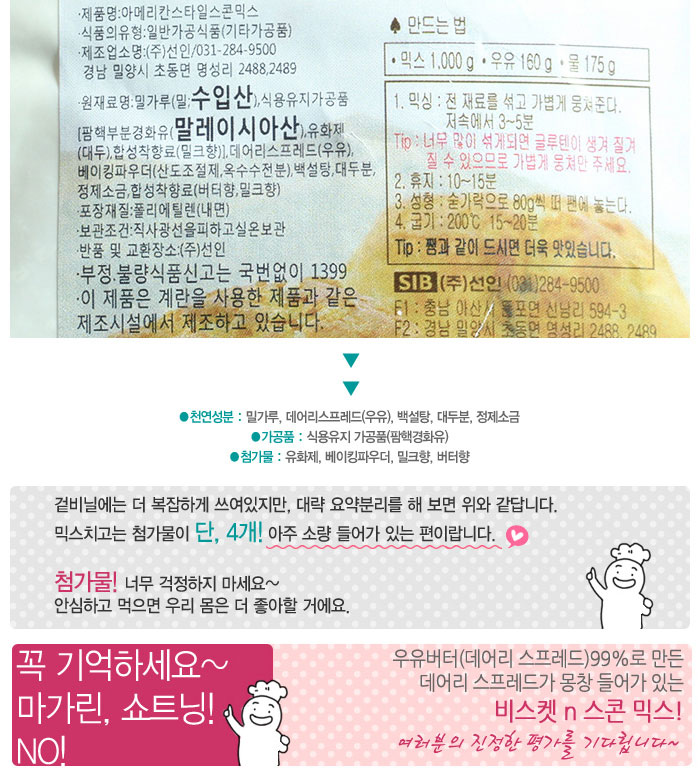 ·제품명:아메리칸스타일스콘믹스
·식품의유형:일반가공식품(기타가공품)
·제조업소명:(주)선인/031-284-9500
경남 밀양시 초동면 명성리 2488,2489
·원재료명:밀가루(밀;수입산),식용유지가공품
[팜핵부분경화유(말레이시아산),유화제
(대두),합성착향료(밀크향)],데어리스프레드(우유),
베이킹파우더(산도조절제,옥수수전분),백설탕,대두분,
정제소금,합성착향료(버터향,밀크향)
·포장재질:폴리에틸렌(내면)
·보관조건:직사광선을피하고실온보관
·반품 및 교환장소:(주)선인
·부정.불량식품신고는 국번없이 1399
·이 제품은 계란을 사용한 제품과 같은
제조시설에서 제조하고 있습니다.
♠ 만드는 법
·믹스 1,000 g ·우유 160 g ·물 175 g
1. 믹싱 : 전 재료를 섞고 가볍게 뭉쳐준다.
저속에서 3~5분
Tip : 너무 많이 섞게되면 글루텐이 생겨 질겨
질 수 있으므로 가볍게 뭉쳐만 주세요.
2. 휴지 : 10~15분
3. 성형 : 숟가락으로 80g씩 떠 팬에 놓는다.
4. 굽기 : 200℃ 15~20분
Tip : 쨈과 같이 드시면 더욱 맛있습니다.
SIB (주)선인 (031)284-9500
F1 : 충남 아산시 둔포면 신남리 594-3
F2 : 경남 밀양시 초동면 명성리 2488, 2489
●천연성분 : 밀가루, 데어리스프레드(우유), 백설탕, 대두분, 정제소금
●가공품 : 식용유지 가공품(팜핵경화유)
●첨가물 : 유화제, 베이킹파우더, 밀크향, 버터향
겉비닐에는 더 복잡하게 쓰여있지만, 대략 요약분리를 해 보면 위와 같답니다.
믹스치고는 첨가물이 단, 4개! 아주 소량 들어가 있는 편이랍니다.
첨가물! 너무 걱정하지 마세요~
안심하고 먹으면 우리 몸은 더 좋아할 거에요.
꼭 기억하세요~
마가린, 쇼트닝!
NO!
우유버터(데어리 스프레드)99%로 만든
데어리 스프레드가 몽창 들어가 있는
비스켓 n 스콘 믹스!
여러분의 진정한 평가를 기다립니다~